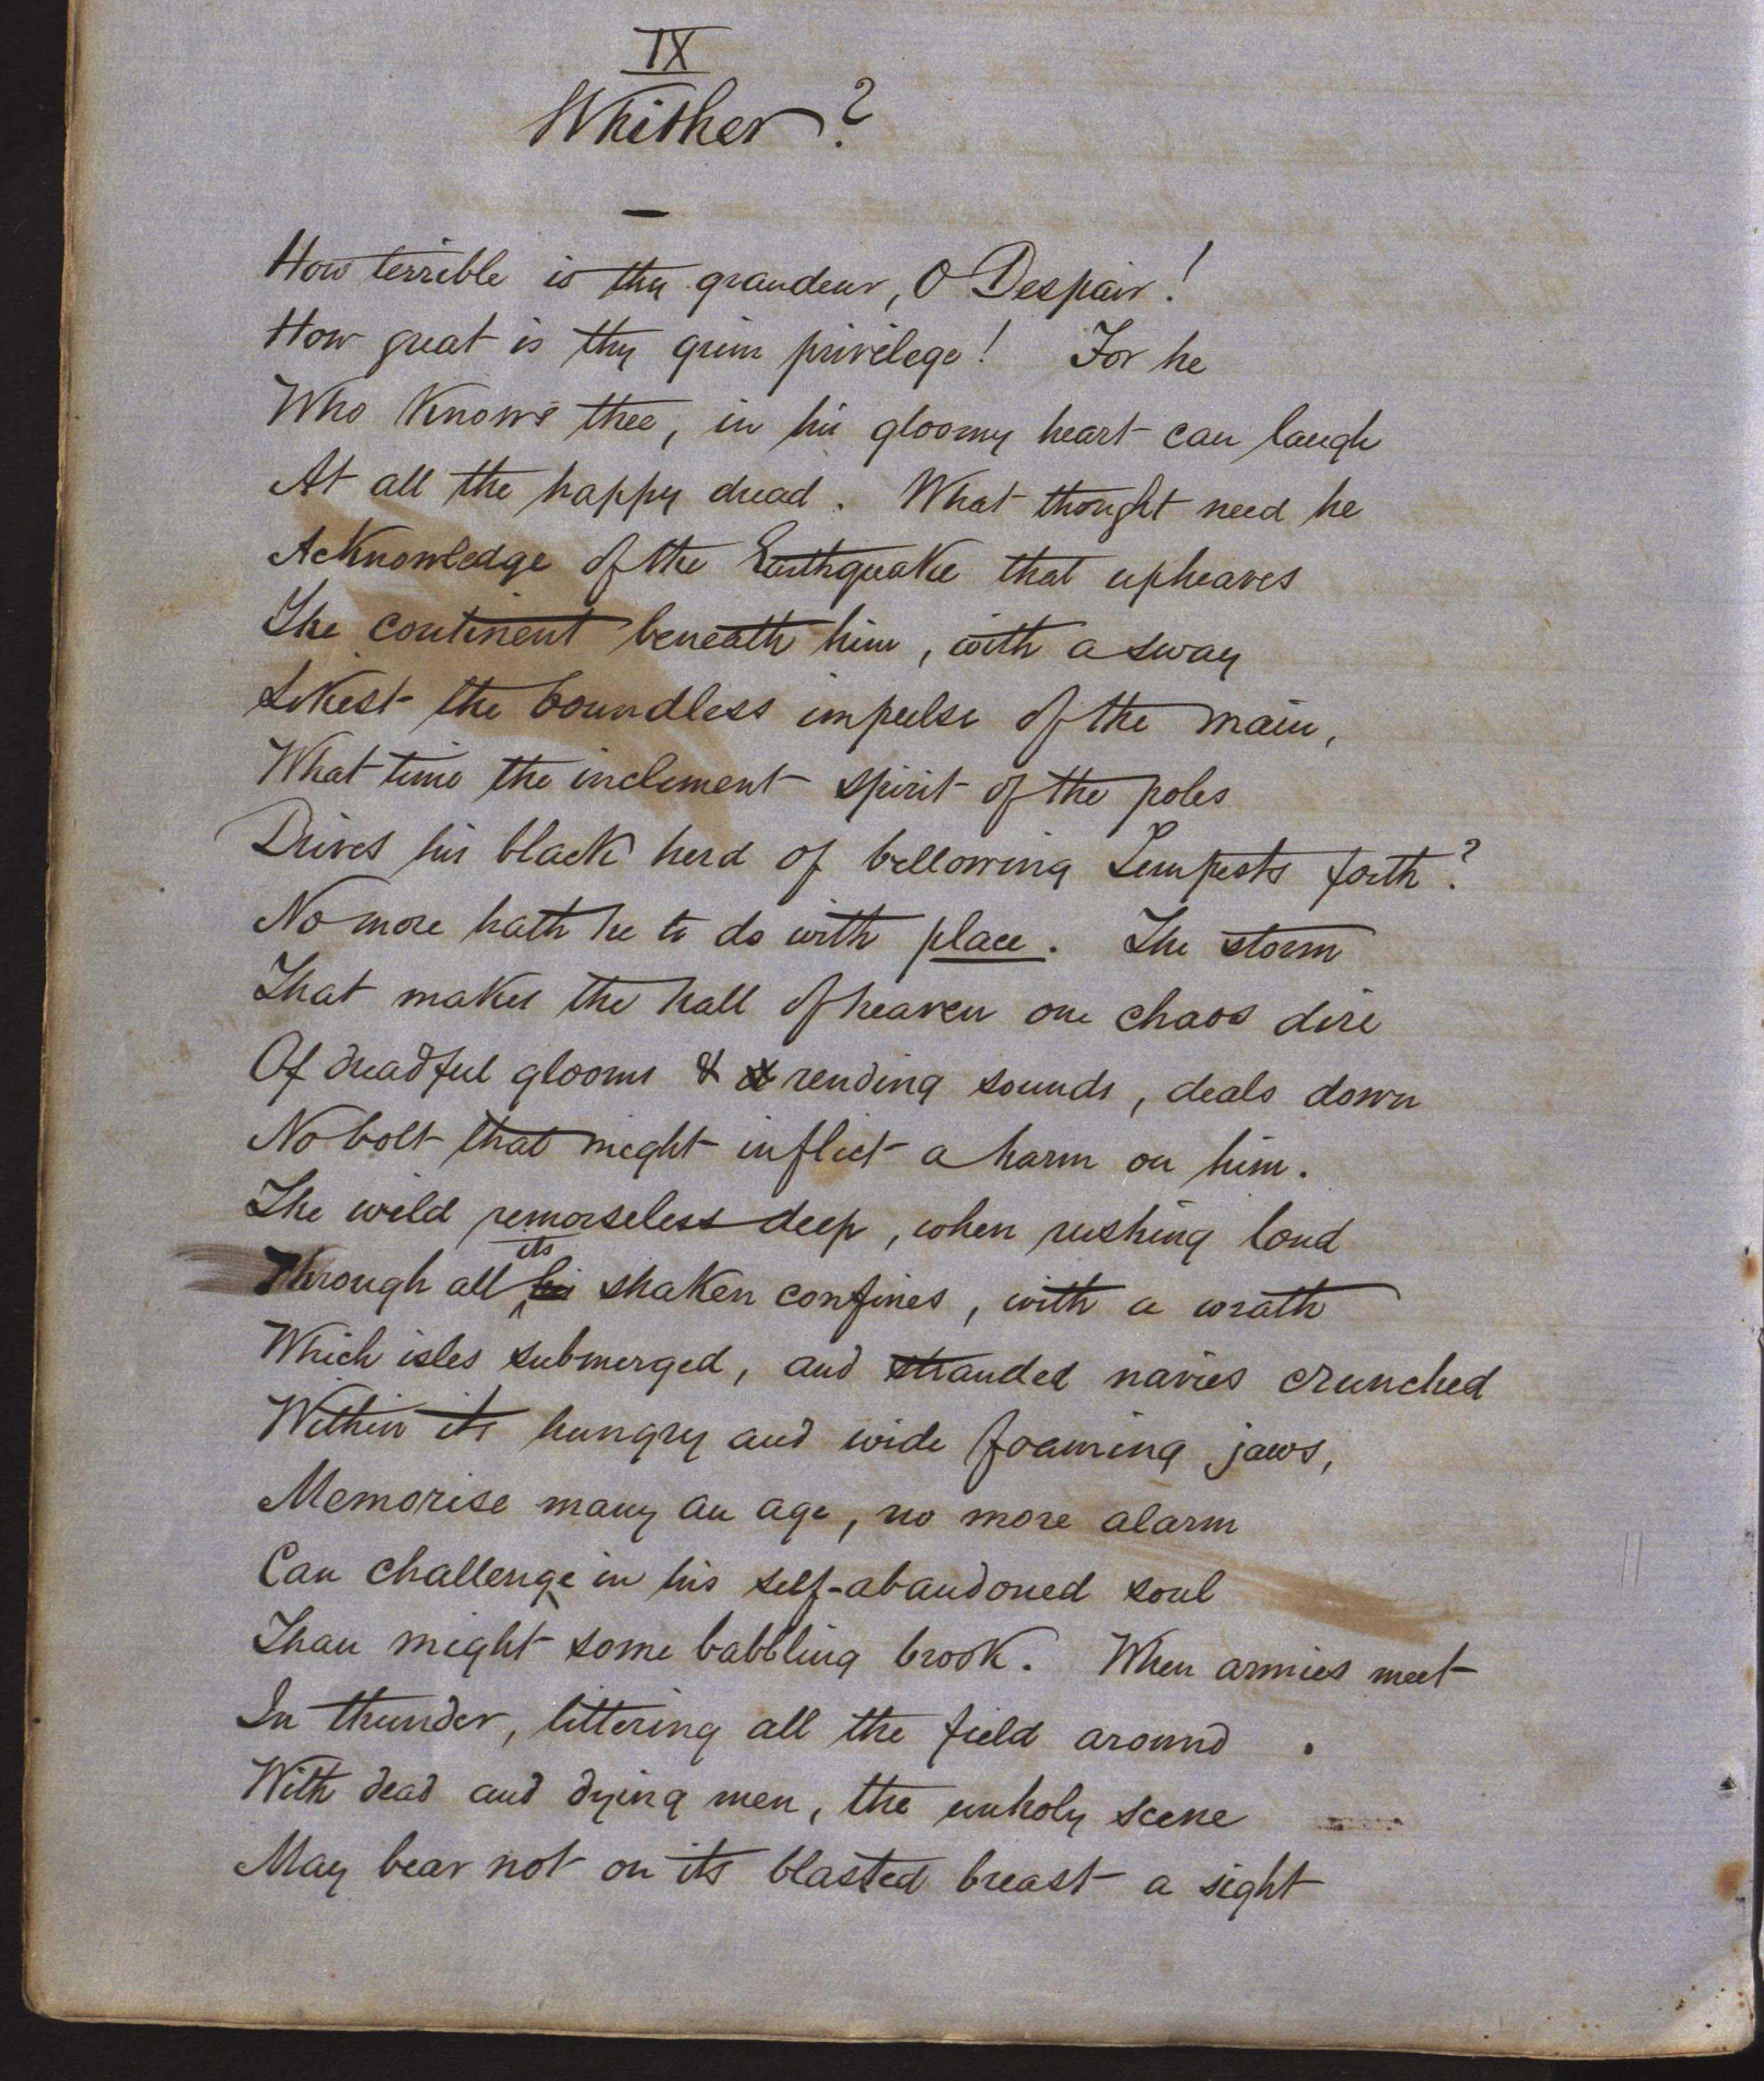 IX
Whither?
How terrible is thy grandeur, O Despair!
How great is thy grim privilege! For he
Who knows thee, in his gloomy heart can laugh
At all the happy dread. What thought need he
Acknowledge of the Earthquake that upheaves
The continent beneath him, with a sway
Likest the boundless impulse of the main,
What time the inclement spirit of the poles
Drives his black herd of bellowing Tempests forth?
No more hath he to do with place. The storm
That makes the hall of heaven one chaos dire
Of dreadful glooms & rending sounds, deals down
No bolt that might inflict a harm on him.
The wild remorseless deep, when rushing loud
Through all its shaken confines, with a wrath
Which isles submerged, and stranded navies crunched
Within its hungry and wide foaming jaws,
Memorise many an age, no more alarm
Can challenge in his self-abandoned soul
Than might some babbling brook. When armies meet
In thunder, littering all the field around
With dead and dying men, the unholy scene
May bear not on its blasted breast a sight